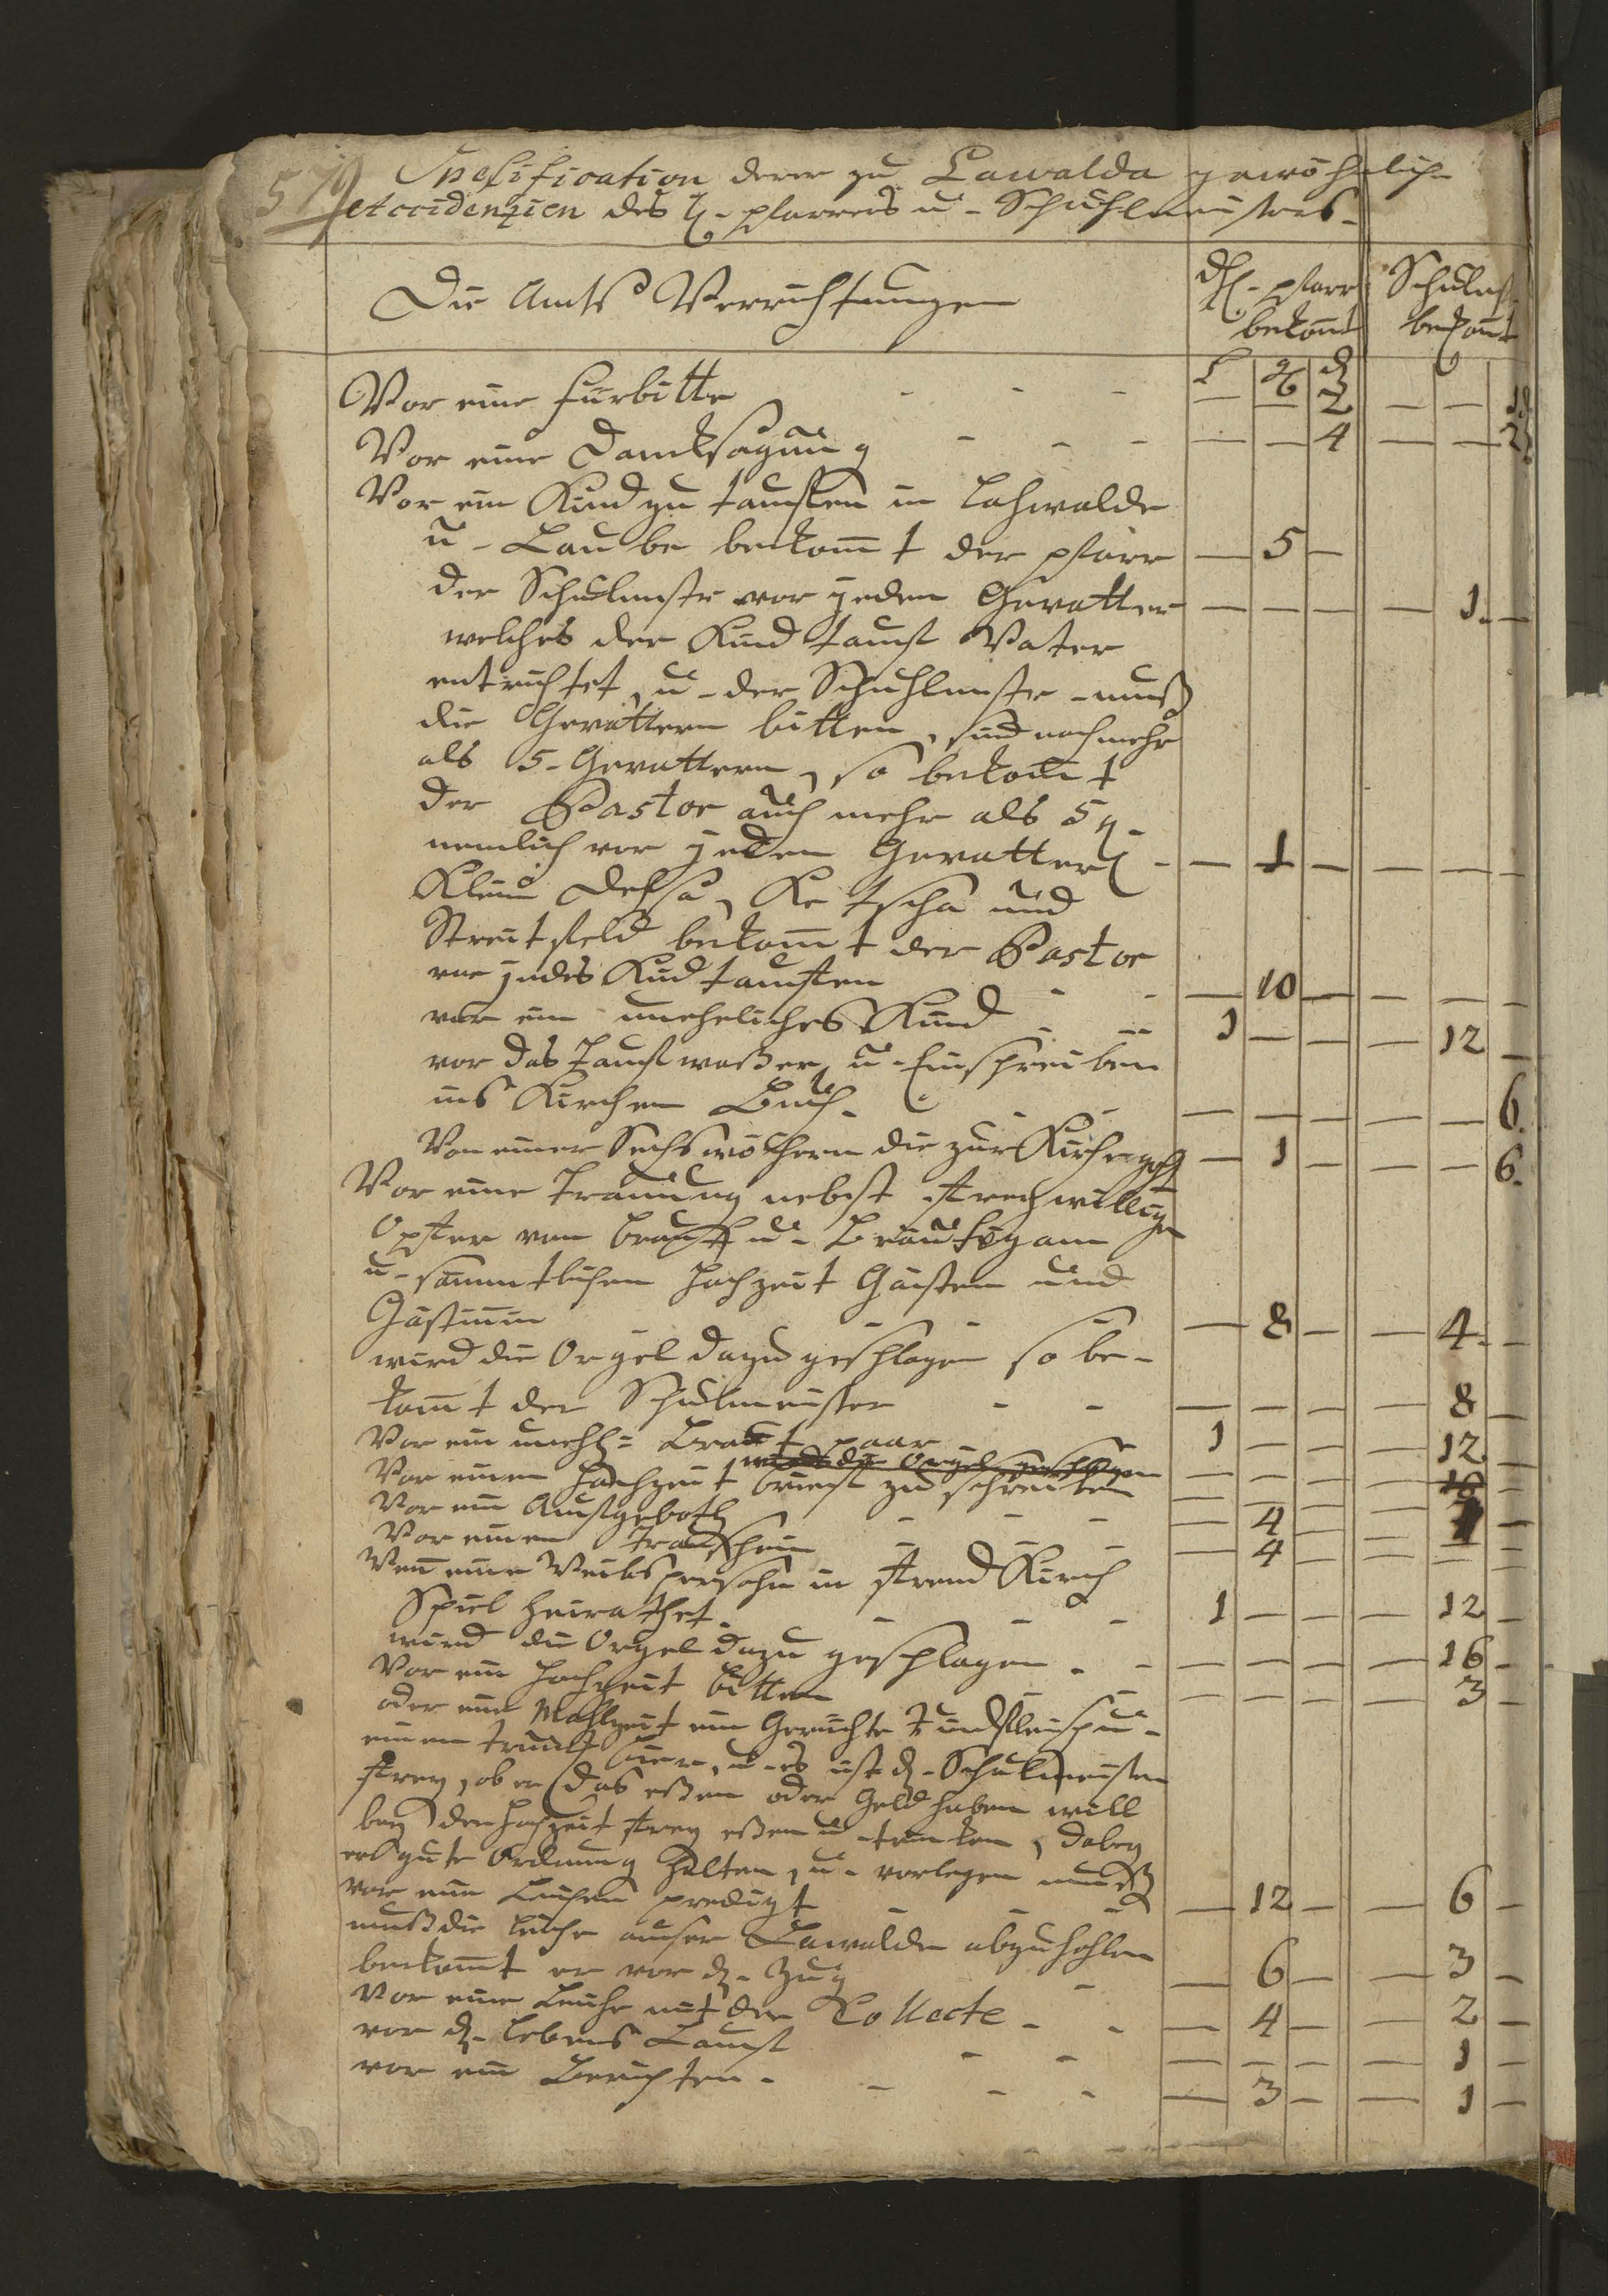 579 Specification derer zu Lawalda gewöhnlich-
Accidenzien des H. pfarrers u- Schuhlmeisters-
Die Amts Verrichtungen
H.- pfarr bekomt
Schulmst. bekomt
Vor eine Fürbitte - - - — — 2 — — 1
Vor eine Dancksagung - - - — — 4 — — 2
Vor ein Kind zu tauffen in Lahwalde
u- Laube bekom̄t der pfarr — 5 —
der Schulmstr vor jeden Gevatter — — — — 1. —
welches der Kindtauf Vater
entrichtet, u- der Schuhlmstr- muß
die Gevattern bitten, sind noch mehr
als 5- Gevattern, so bekom̄t
der Pastor auch mehr als 5 g.
nemlich vor jeden Gevatter - — 1 — — — —
Klein Dehsa, Kötscha und
Streitfeld bekom̄t der Pastor
vor jedes Kind tauffen - - — 10 — — — —
vor ein uneheliches Kind - - 1 — — — 12 —
vor das Taufwaßer, u- Einschreiben
ins Kirchen Buch- — — — — — 6.
Von einer Sechswöchern die zur Kirche geh — 1 — — — 6.
Vor eine Trauung nebst freywillige
Opfer von Braut u- Bräutigam
u- sämmtlichen Hochzeit Gästen und
Gästinin - - - — 8 — — 4. —
wird die Orgel dazu geschlagen so be-
kom̄t der Schulmeister - - — — — — 8 —
Vor ein unehl= Braut paar 1 — — — 12 —
wird die Orgel geschlagen — — — — 16 —
Vor einen Hochzeit brief zu schreiben
Vor ein Aufgeboth - - - — 4 — —
Vor einen Trauschein - - — 4 — — — —
Wen̄ eine Weibspersohn in fremd Kirch
Spiel heirathet- - - - 1 — — — 12 —
wird die Orgel dazu geschlagen - - — — — — 16 —
Vor ein Hochzeit bitten - - — — — — 3 —
oder eine Mahlzeit ein Gerichte Rindfleisch u-
einen trunck Bier, u- es ist d- Schulmeister
frey, ob er das eßen oder Geld haben will
bey der Hochzeit frey eßen u- trinken, dabey
er gute Ordnung halten, u- vorlegen muß
vor eine Leichen predigt - - - — 12 — — 6 —
muß die Leiche auser Lawalde abzuhohlen
bekom̄t er vor d- Zug - — 6 — — 3 —
Vor eine Leiche mit der Collecte - - — 4 — — 2 —
vor d- Lebens Lauf - - — — — — 1 —
vor ein Berichten- - - - — 3 — — 1 —